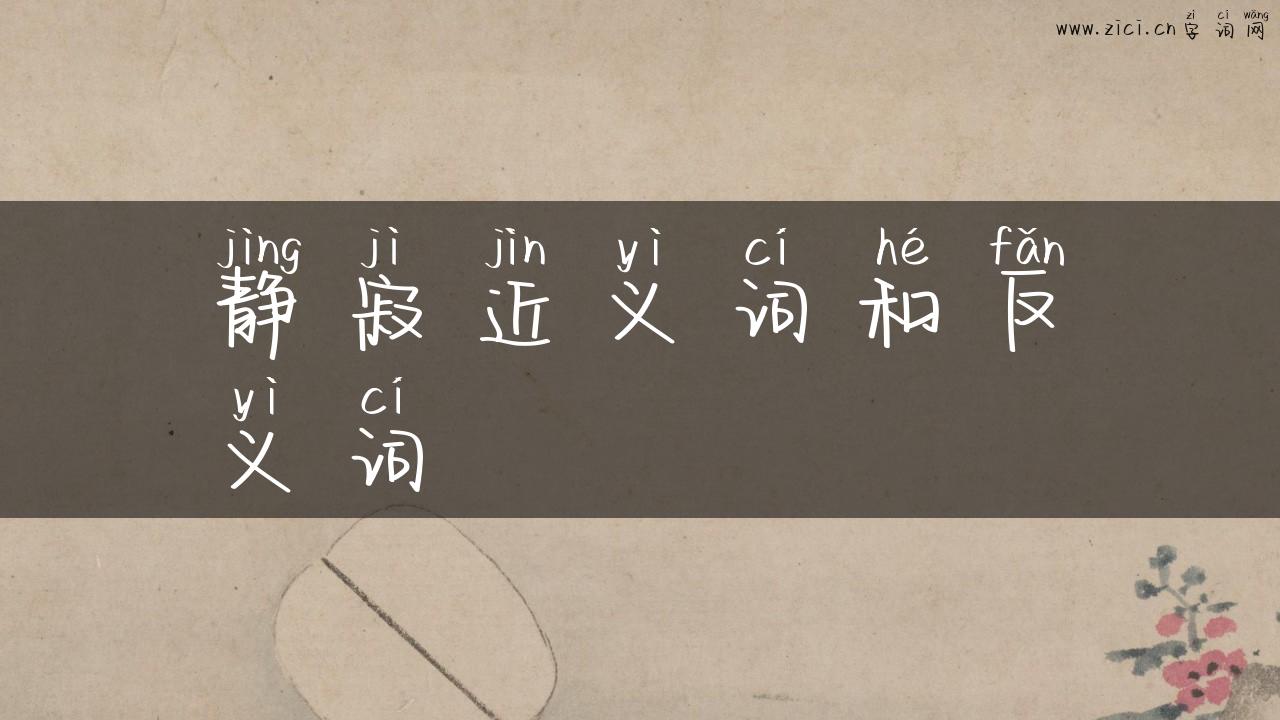 zì cí wǎng
www.zici.cn 字词网
jìng jì jìn yì cí hé fǎn
静寂近义词和反
yì cí
义词